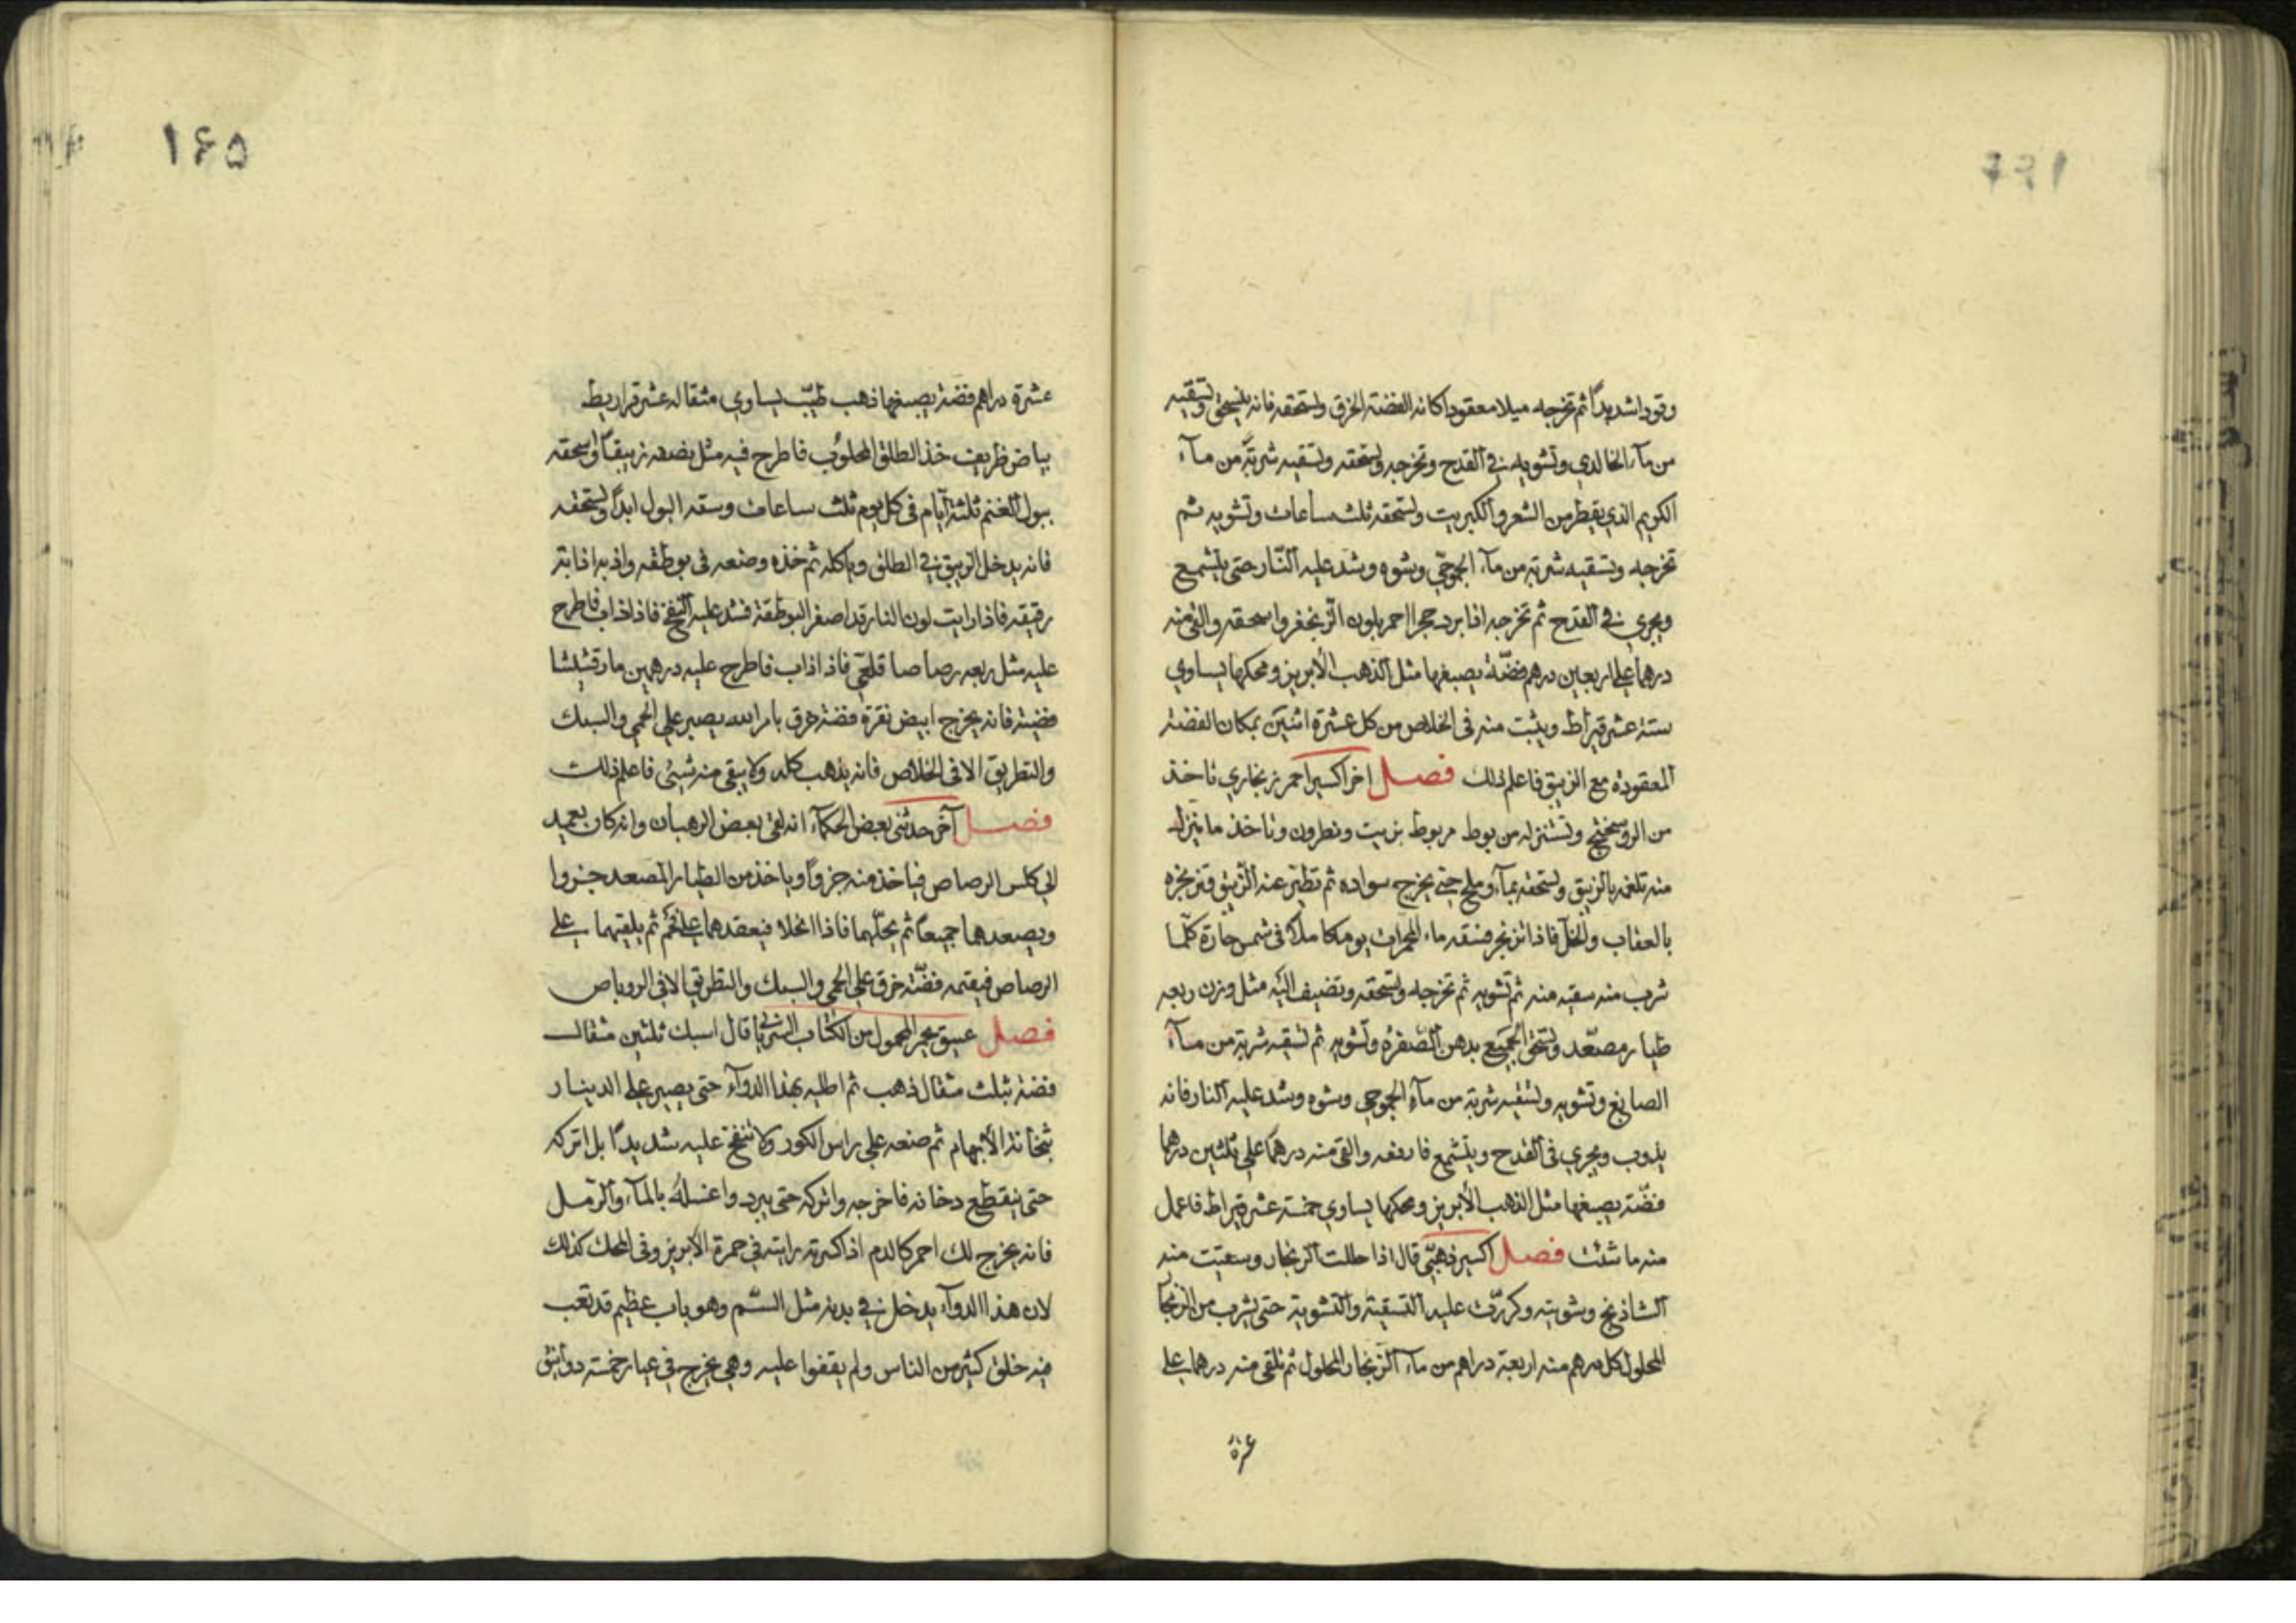 وقودا شديداً ثم تخرجه ميلا معقودا كانه الفضة الخرق وتسحقه فانه ينسحق وتسقيه
من مآء الخالدي وتشويه في القدح وتخرجه وتسحقه وتسقيه شربة من مآء
الكريم الذي يقطر من الشعر والكبريت وتسحقه ثلث ساعات وتشويه ثم
تخرجه وتسقيه شربة من مآء وشوه وشد عليه النّار حتى يتشمع
ويجري في القدح ثم تخرجه اذا برد حجرا احمر بلون الزنجفر واسحقه والق منه
درهما على اربعين درهم فضّة يصبغها مثل الذهب الأبريز ومحكها يساوي
ستة عشر قيراط ويثبت منه في الخلاص من كل عشرة اثنين بمكان الفضة
المعقودة مع الزيبق فاعلم ذلك فصل اخر اكسير احمر زنجاري تاخذ
من الروسختج وتستنزله من بوط مربوط بزيت ونطرون وتاخذ ما ينزل
منه تلغمه بالزيبق وتسحقه بمآء وملح حتى يخرج سواده ثم تطيّر عنه الزيبق وتزنجره
بالعقاب والخل فاذا تزنجر فسقه ماء يوما كاملاً في شمس حارة كلّما
شرب منه سقيه منه ثم تشويه ثم تخرجه وتسحقه وتضيف اليه مثل وزن ربعه
طيار مصعّد وتسحق الجميع بدهن الصفرة وتشويه ثم تسقيه شربة من مآء
الصابغ وتشويه وتسقيه شربة من مآء وشوه وشد عليه النار فانه
يذوب ويجري في القدح ويتشمع فارفعه والق منه درهما على ثلثين درهما
فضّة يصبغها مثل الذهب الأبريز ومحكها يساوي خمسة عشر قيراط فاعمل
منه ما شئت فصل اكسير ذهبيّ قال اذا حللت الزنجار وسقيت منه
الشاذنج وشويته وكررّت عليه التسقية والتشوية حتى يشرب من الزنجار
المحلول كل درهم منه اربعة دراهم من مآء الزنجار المحلول ثم تلقى منه درهما على
عشرة
١٤٥
عشرة دراهم فضة يصبغها ذهب طيّب يساوي مثقاله عشر قراريط
بياض ظريف خذ الطلق المحلوب فاطرح فيه مثل نصفه زيبقاً واسحقه
ببول الغنم ثلثة ايام في كل يوم ثلث ساعات وسقه البول ابداً وتسحقه
فانه يدخل الزيبق في الطلق وياكله ثم خذه وضعه في بوطقه واذبه اذابة
رقيقه فاذا رايت لون النار قد اصفر البوطقة فشد عليه النفخ فاذا ذاب فاطرح
عليه مثل ربعه رصاصا قلعي فاذا ذاب فاطرح عليه درهمين مارقشيشا
فضية فانه يخرج ابيض نقرة فضة خرق بامر الله يصبر على الحمي والسبك
والتطريق الا في الخلاص فانه يذهب كله ولا يبقى منه شيئ فاعلم ذلك
فصل آخر حدثني بعض الحكمآء انه لقي بعض الرهبان وانه كان يعمد
الى كلس الرصاص فياخذ منه جزواً وياخذ من الطيار المصعد جزوا
ويصعدهما جميعاً ثم يحلّهما فاذا انحلا فيعقدهما ثم يلقيهما على
الرصاص فيقيمه فضّة خرق على الحمي والسبك والتطريق الا في الروباص
فصل من الكتاب قال اسبك ثلثين مثقال
فضة بثلث مثقال ذهب ثم اطليه بهذا الدوآء حتى يصير على الدينار
بثخانة الأبهام ثم ضعه على راس الكور ولا تنفخ عليه شديداً بل اتركه
حتى ينقطع دخانه فاخرجه واتركه حتى يبرد واغسله بالمآء والرمل
فانه يخرج لك احمر كالدم اذا كسرته رايته في حمرة الأبريز وفي المحك كذلك
لان هذا الدوآء يدخل في بدنه مثل السّم وهو باب عظيم قد تعب
فيه خلق كثير من الناس ولم يقفوا عليه وهي يخرج في عيار خمسة دوانيق